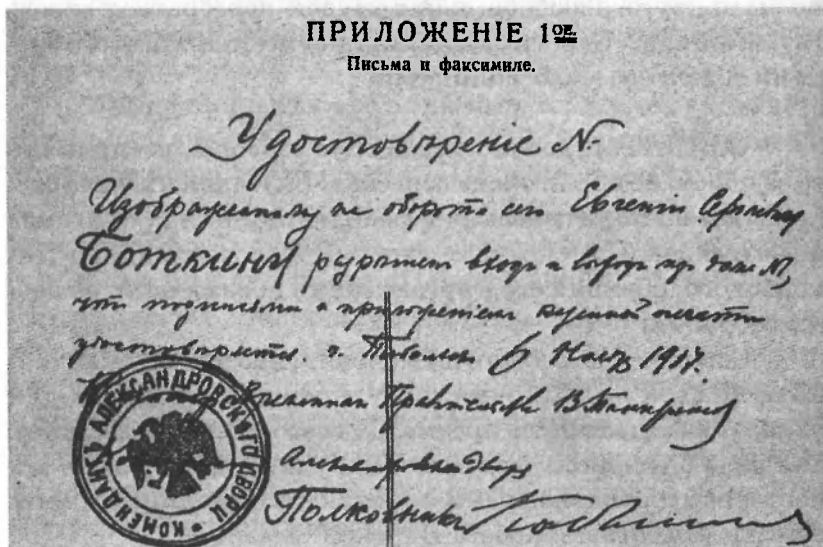 ПРИЛОЖЕНІЕ 1ое.
Письма и факсимиле.
Удостовѣреніе N-
Изображенному на оборотѣ сего Евгенію Сергѣевичу
Боткину разрѣшенъ входъ и выходъ изъ дома №,
что подписями и приложеніемъ казенной печати
удостовѣряется. г. Тобольскъ 6 Нояб 1917.
Временнаго Правительства В Панкратовъ
Александровскаго Дворц
Полковникъ Кобылинскій
КОМЕНДАНТЪ АЛЕКСАНДРОВСКАГО ДВОРЦ